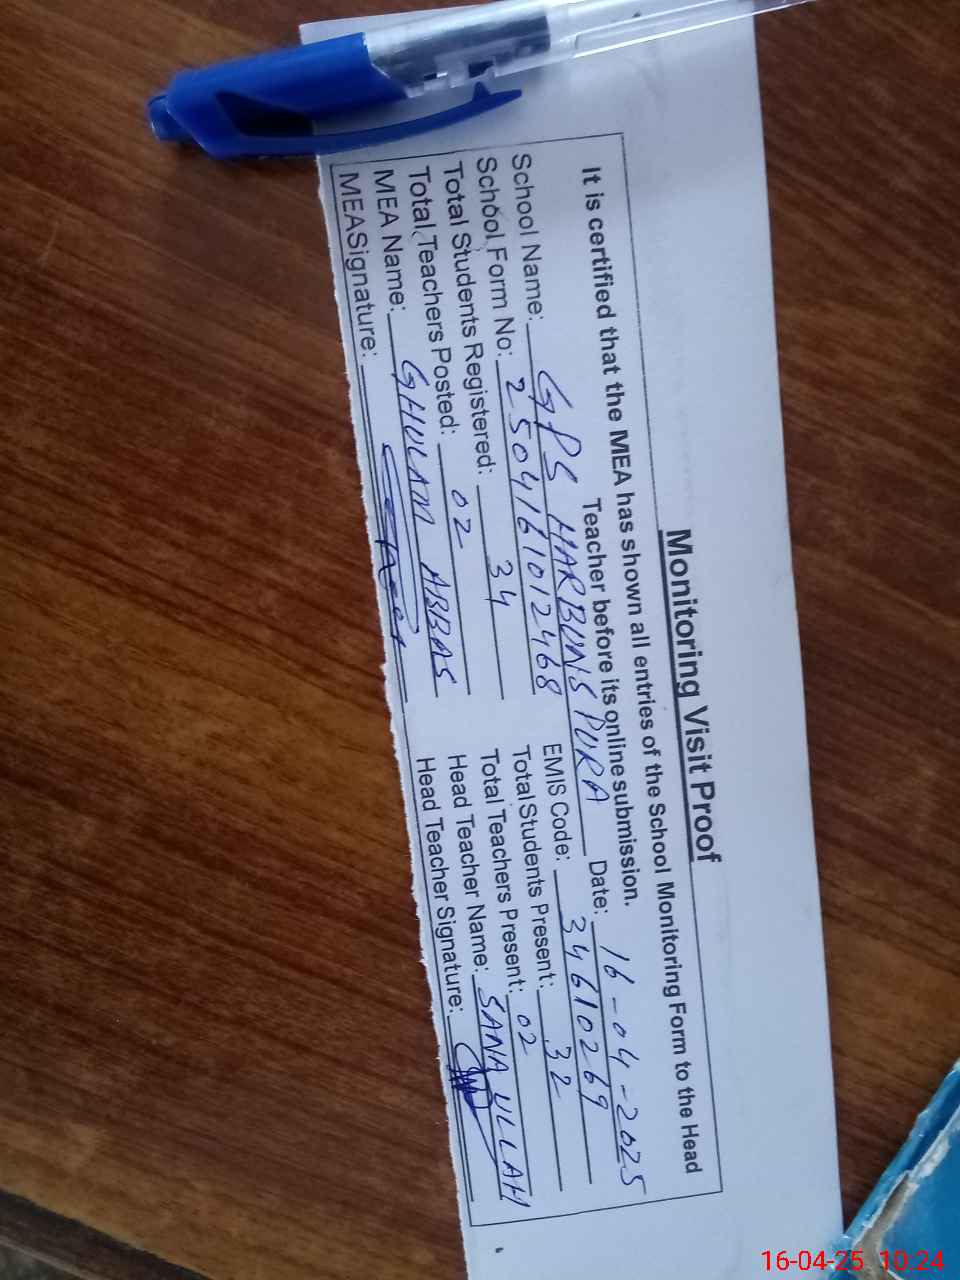 Monitoring Visit Proof
It is certified that the MEA has shown all entries of the School Monitoring Form to the Head
Teacher before its online submission.
School Name: GPS HARBUNS PURA Date: 16-04-2025
School Form No: 2504161012468 EMIS Code: 34610269
Total Students Registered: 34 Total Students Present: 32
Total Teachers Posted: 02 Total Teachers Present: 02
MEA Name: GHULAM ABBAS Head Teacher Name: SANA ULLAH
MEASignature: Head Teacher Signature:
16-04-25 10:24